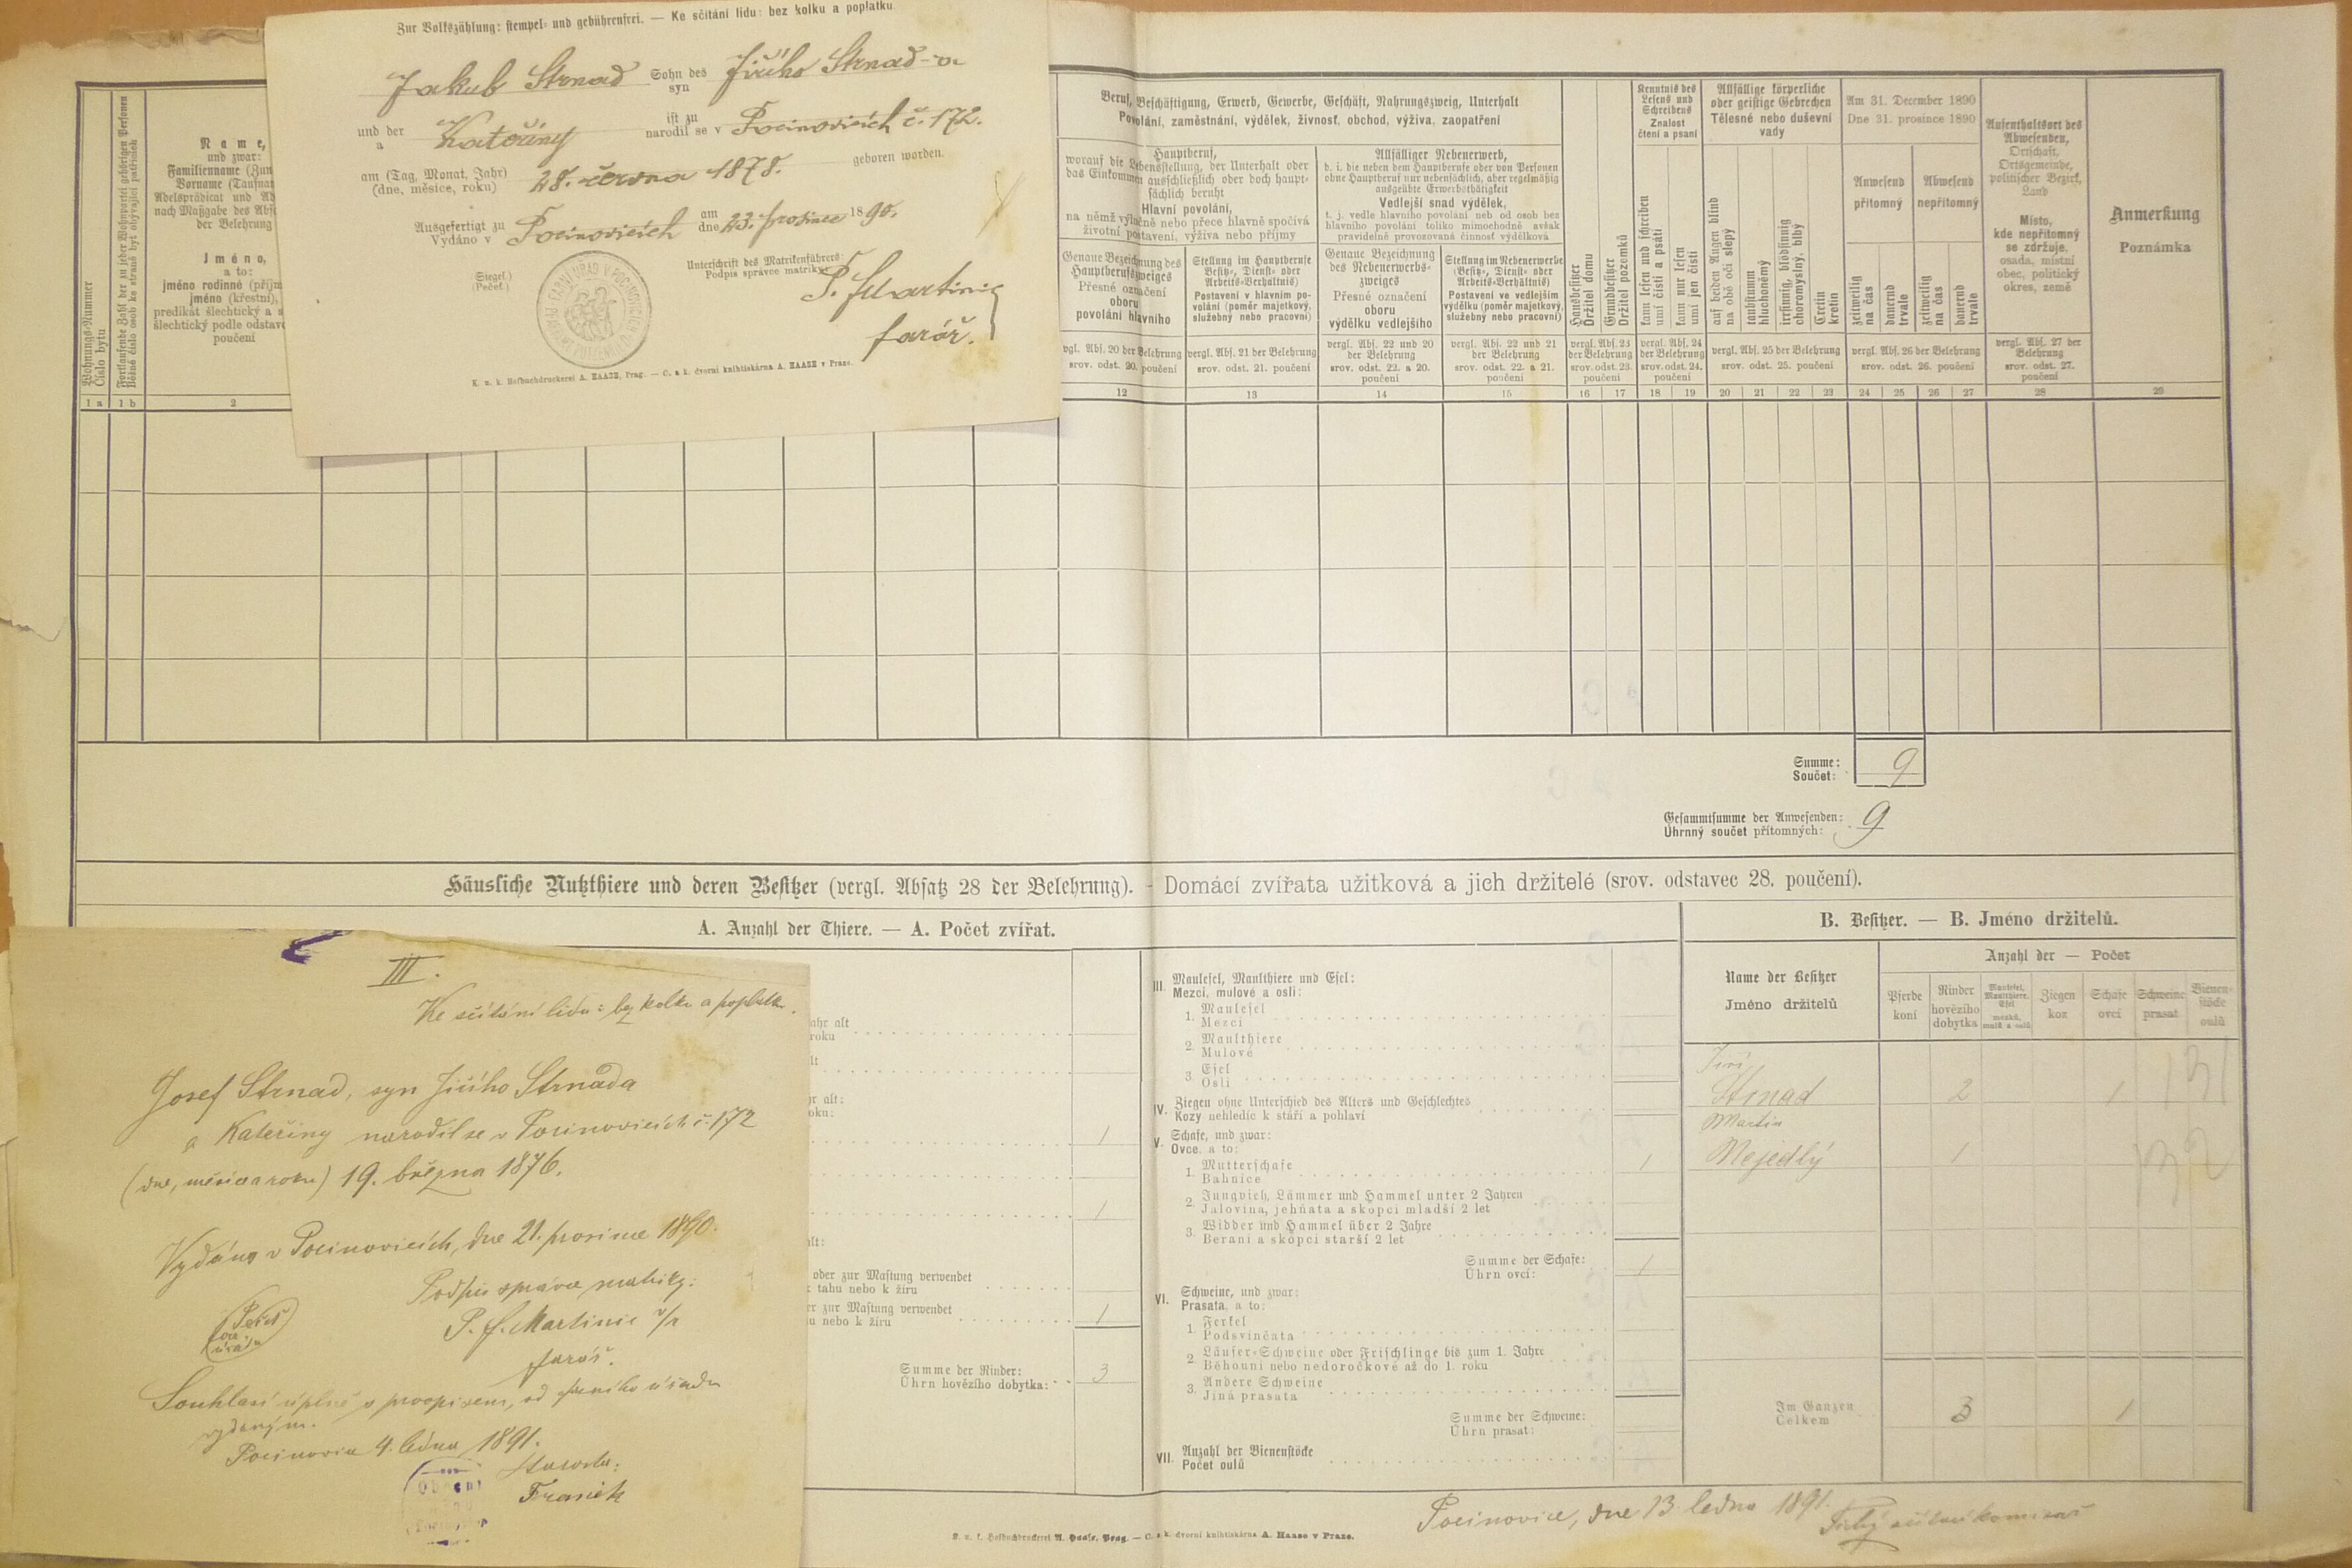 Zur Volkszählung: stempel- und gebührenfrei. — Ke sčítání lidu: bez kolku a poplatku.
Jakub Strnad Sohn des Jiřího Strnad-a
syn
und der Kateřiny ist zu Pocinovicích č. 172.
a narodil se v
am (Tag, Monat, Jahr) 28. června 1878. geboren worden.
(dne, měsíce, roku)
Ausgefertigt zu Pocinovicích am 23. prosince 1890.
Vydáno v dne
(Siegel.)
(Pečeť.)
Unterschrift des Matrikenführers:
Podpis správce matriky:
P. J. Martinic
farář.
K. u. k. Hofbuchdruckerei A. HAASE, Prag. — C. a k. dvorní knihtiskárna A. HAASE v Praze.
Wohnungs-Nummer
Číslo bytu
Fortlaufende Zahl der zu jeder Wohnpartei gehörigen Personen
Běžné číslo osob ke straně byt obývající patřících
Name,
und zwar:
Familienname
Vorname
Adelsprädicat und
nach Maßgabe des
der Belehrung
Jméno,
a to:
jméno rodinné
jméno (křestní),
predikát šlechtický a
šlechtický podle
poučení
1 a 1 b 2
Beruf, Beschäftigung, Erwerb, Gewerbe, Geschäft, Nahrungszweig, Unterhalt
Povolání, zaměstnání, výdělek, živnosť, obchod, výživa, zaopatření
Hauptberuf,
worauf die Lebensstellung, der Unterhalt oder
das Einkommen ausschließlich oder doch haupt-
sächlich beruht
Hlavní povolání,
na němž výlučně nebo přece hlavně spočívá
životní postavení, výživa nebo příjmy
Allfälliger Nebenerwerb,
d. i. die neben dem Hauptberufe oder von Personen
ohne Hauptberuf nur nebensächlich, aber regelmäßig
ausgeübte Erwerbsthätigkeit
Vedlejší snad výdělek,
t. j. vedle hlavního povolání neb od osob bez
hlavního povolání toliko mimochodně avšak
pravidelně provozovaná činnosť výdělková
Genaue Bezeichnung des
Hauptberufszweiges
Přesné označení
oboru
povolání hlavního
Stellung im Hauptberufe
(Besitz-, Dienst- oder
Arbeits-Verhältnis)
Postavení v hlavním po-
volání (poměr majetkový,
služebný nebo pracovní)
Genaue Bezeichnung
des Nebenerwerbs-
zweiges
Přesné označení
oboru
výdělku vedlejšího
Stellung im Nebenerwerbe
(Besitz-, Dienst- oder
Arbeits-Verhältnis)
Postavení ve vedlejším
výdělku (poměr majetkový,
služebný nebo pracovní)
Hausbesitzer
Držitel domu
Grundbesitzer
Držitel pozemků
Kenntnis des
Lesens und
Schreibens
Znalost
čtení a psaní
kann lesen und schreiben
umí čísti a psáti
kann nur lesen
umí jen čísti
Allfällige körperliche
oder geistige Gebrechen
Tělesné nebo duševní
vady
auf beiden Augen blind
na obě oči slepý
taubstumm
hluchoněmý
irrsinnig, blödsinnig
choromyslný, blbý
Cretin
kretin
Am 31. December 1890
Dne 31. prosince 1890
Anwesend
přítomný
Abwesend
nepřítomný
zeitweilig
na čas
dauernd
trvale
zeitweilig
na čas
dauernd
trvale
Aufenthaltsort des
Abwesenden,
Ortschaft,
Ortsgemeinde,
politischer Bezirk,
Land
Místo,
kde nepřítomný
se zdržuje,
osada, místní
obec, politický
okres, země
Anmerkung
Poznámka
vgl. Abs. 20 der Belehrung
srov. odst. 20. poučení
vergl. Abs. 21 der Belehrung
srov. odst. 21. poučení
vergl. Abs. 22 und 20
der Belehrung
srov. odst. 22. a 20.
poučení
vergl. Abs. 22 und 21
der Belehrung
srov. odst. 22. a 21.
poučení
vergl. Abs. 23
der Belehrung
srov. odst. 23.
poučení
vergl. Abs. 24
der Belehrung
srov. odst. 24.
poučení
vergl. Abs. 25 der Belehrung
srov. odst. 25. poučení
vergl. Abs. 26 der Belehrung
srov. odst. 26. poučení
vergl. Abs. 27 der
Belehrung
srov. odst. 27.
poučení
12 13 14 15 16 17 18 19 20 21 22 23 24 25 26 27 28 29
Summe:
Součet: 9
Gesammtsumme der Anwesenden:
Úhrnný součet přítomných: 9
Häusliche Nutzthiere und deren Besitzer (vergl. Absatz 28 der Belehrung). - Domácí zvířata užitková a jich držitelé (srov. odstavec 28. poučení).
A. Anzahl der Thiere. — A. Počet zvířat.
B. Besitzer. — B. Jméno držitelů.
III.
Ke sčítání lidu: bez kolku a poplatku.
Josef Strnad, syn Jiřího Strnada
a Kateřiny narodil se v Pocinovicích č. 172
(dne, měsíce a roku) 19. března 1876.
Vydáno v Pocinovicích, dne 21. prosince 1890.
Podpis správce matriky:
P. J. Martinic v/r
farář.
Souhlasí úplně s prvopisem, od farního úřadu
vydaným.
Pocinovice 4. ledna 1891.
Starosta:
Obecní
jahr alt
roku
lt
r alt:
oku:
1
1
lt:
oder zur Mastung verwendet
tahu nebo k žíru
er zur Mastung verwendet
u nebo k žíru 1
Summe der Rinder:
Úhrn hovězího dobytka: 3
III. Maulesel, Maulthiere und Esel:
Mezci, mulové a osli:
1. Maulesel
Mezci
2. Maulthiere
Mulové
3. Esel
Osli
IV. Ziegen ohne Unterschied des Alters und Geschlechtes
Kozy nehledíc k stáří a pohlaví
V. Schafe, und zwar:
Ovce, a to:
1. Mutterschafe
Bahnice 1
2. Jungvieh, Lämmer und Hammel unter 2 Jahren
Jalovina, jehňata a skopci mladší 2 let
3. Widder und Hammel über 2 Jahre
Berani a skopci starší 2 let
Summe der Schafe:
Úhrn ovcí: 1
VI. Schweine, und zwar:
Prasata, a to:
1. Ferkel
Podsvinčata
2. Läufer-Schweine oder Frischlinge bis zum 1. Jahre
Běhouni nebo nedoročkové až do 1. roku
3. Andere Schweine
Jiná prasata
Summe der Schweine:
Úhrn prasat:
VII. Anzahl der Bienenstöcke
Počet oulů
Name der Besitzer
Jméno držitelů
Anzahl der — Počet
Pferde
koní
Rinder
hovězího
dobytka
Maulesel,
Maulthiere,
Esel
mezků,
mulů a oslů
Ziegen
koz
Schafe
ovcí
Schweine
prasat
Bienen-
stöcke
oulů
Jiří
Strnad 2 1
Martin
Nejedlý 1
Im Ganzen
Celkem 3 1
Pocinovice, dne 13. ledna 1891.
sčítací komisař
K. u. k. Hofbuchdruckerei A. Haase, Prag. — C. a k. dvorní knihtiskárna A. Haase v Praze.